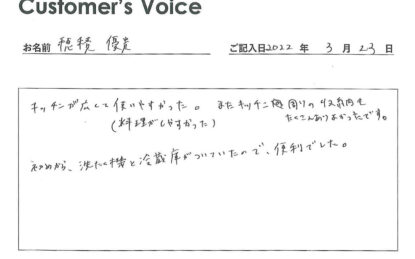 Customer's Voice
お名前 穂積 優貴 ご記入日2022 年 3 月 23 日
キッチンが広くて使いやすかった。またキッチン周りの収納も
(料理がしやすかった) たくさんありよかったです。
初めから、洗たく機と冷蔵庫がついていたので、便利でした。